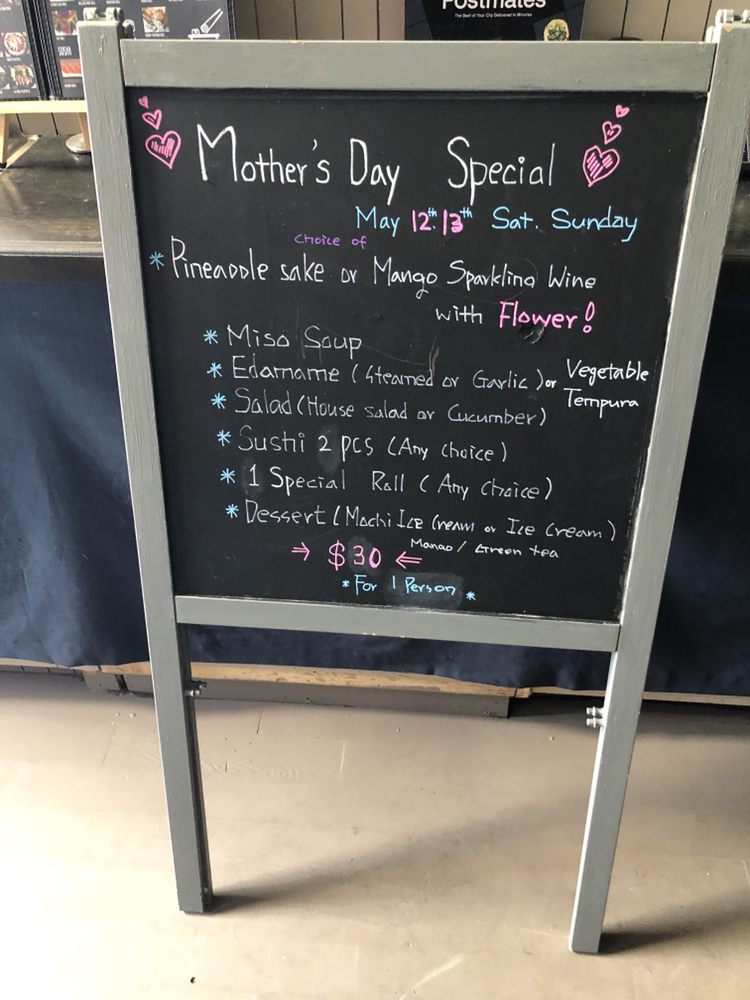 Postmates
The Best of Your City Delivered in Minutes
Mother's Day Special
May 12th. 13th Sat. Sunday
choice of
* Pineapple sake or Mango Sparkling Wine
with Flower!
* Miso Soup
* Edamame (Steamed or Garlic) or Vegetable Tempura
* Salad (House salad or Cucumber)
* Sushi 2 pcs (Any choice)
* 1 Special Roll (Any Choice)
* Dessert (Mochi Ice Cream or Ice Cream)
Mango / Green tea
⇒ $30 ⇐
* For 1 Person *